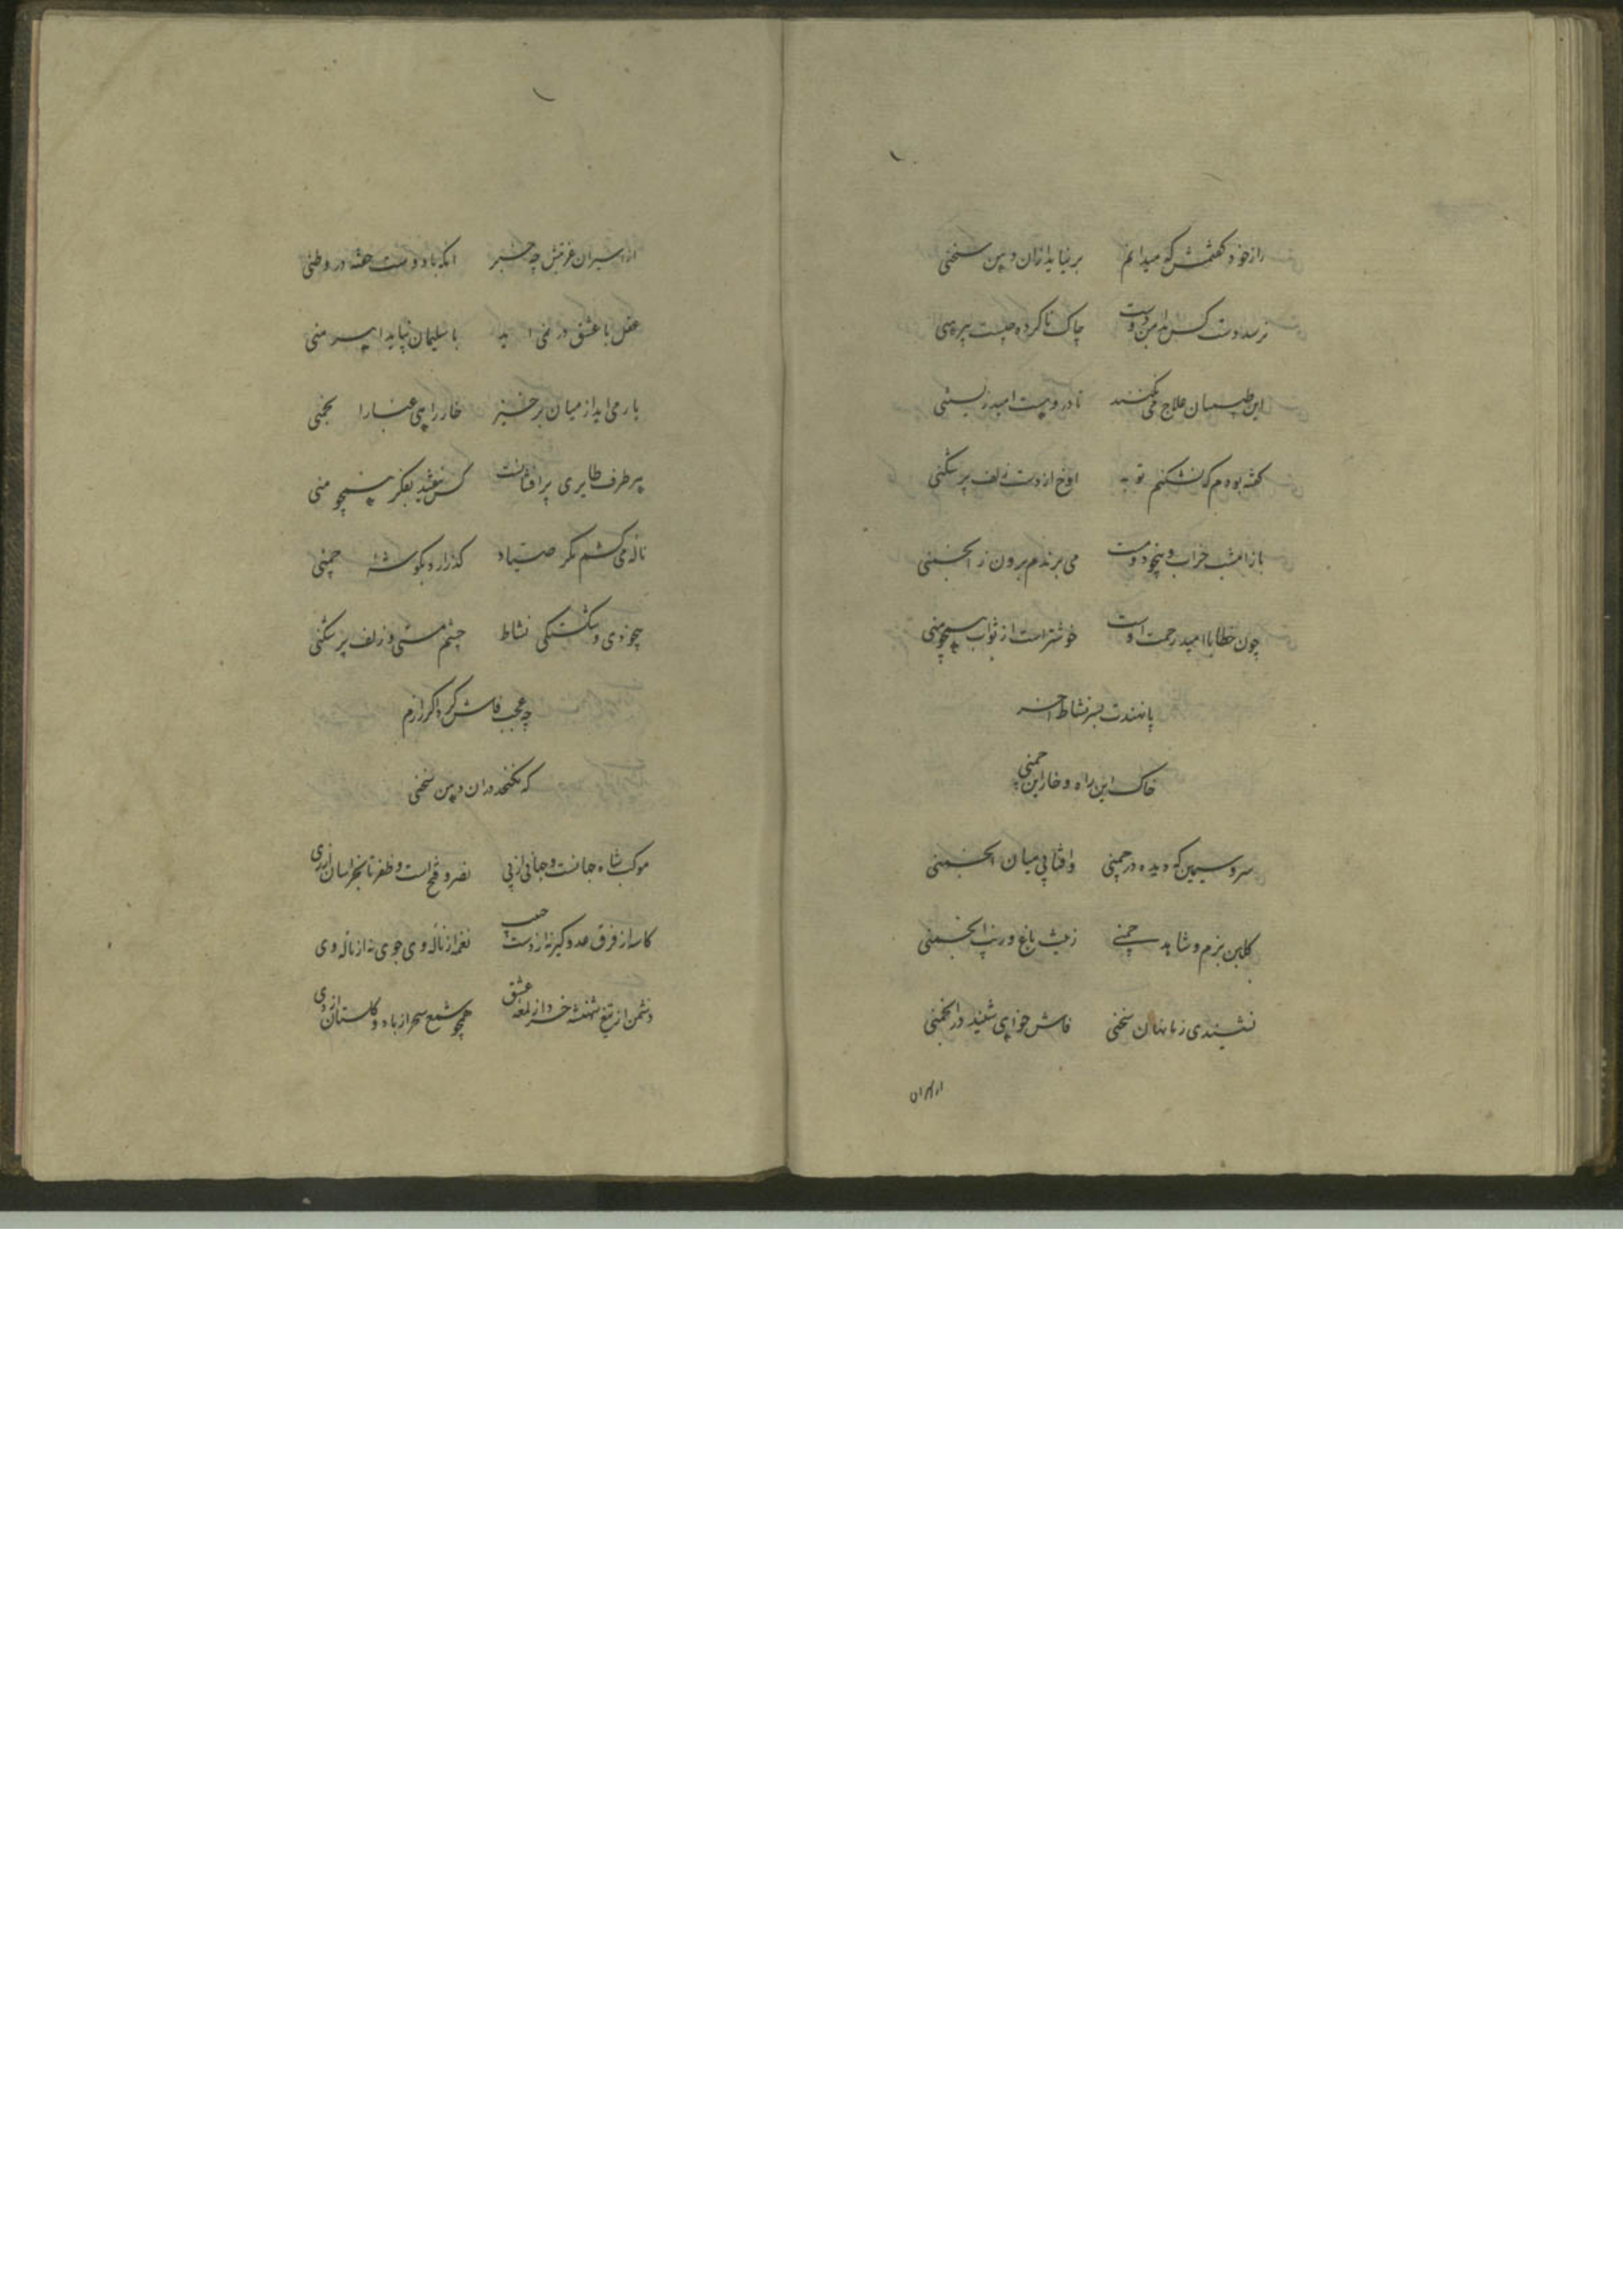 راز خود گفتمش که میدانم بر نیاید ازان دهن سخنی
نرسد دست کس بدامن دوست چاک ناکرده جیب پیرهنی
این طبیبان علاج می نکنند تا درو هست امید زیستنی
گفته بودم که نشکنم توبه اوخ از دست زلف پرشکنی
باز امشب خراب و بیخود و مست می برندم برون ز انجمنی
چون خطا با امید رحمت اوست خوشتر است از ثواب همچو منی
پا نهندت بسر نشاط اخر
خاک این راه و خار این چمنی
سرو سیمین که دیده در چمنی وافتابی میان انجمنی
گلبن بزم و شاهد چمنی زینت باغ و زیب انجمنی
نشنیدی ز ما نهان سخنی فاش خواهی شنید در انجمنی
از اسیران
از اسیران غربتش چه خبر انکه با دوست خفته در وطنی
عقل با عشق در نمی اید با سلیمان نیاید اهرمنی
یار می اید از میان برخیز خار را پی عنا را بکنی
هر طرف طایری پر افشانست کس نیفتد بفکر همچو منی
ناله می کشم مگر صیاد گذراند بگوشه چمنی
بیخودی و شکستگی نشاط چشم مستی و زلف پرشکنی
چه عجب فاش کرد اگر رازم
که نگنجد دران دهن سخنی
موکب شاه جهانست و جهانی از پی نصر و فتح است و ظفر تا بخراسان از ری
کاسه از فرق عدو گیر نه از دست حبیب نغمه از ناله وی جوی نه از ناله وی
دشمن از تیغ شهنشه خرد از لمعه عشق همچو شمع سحر از باد و گلستان از دی